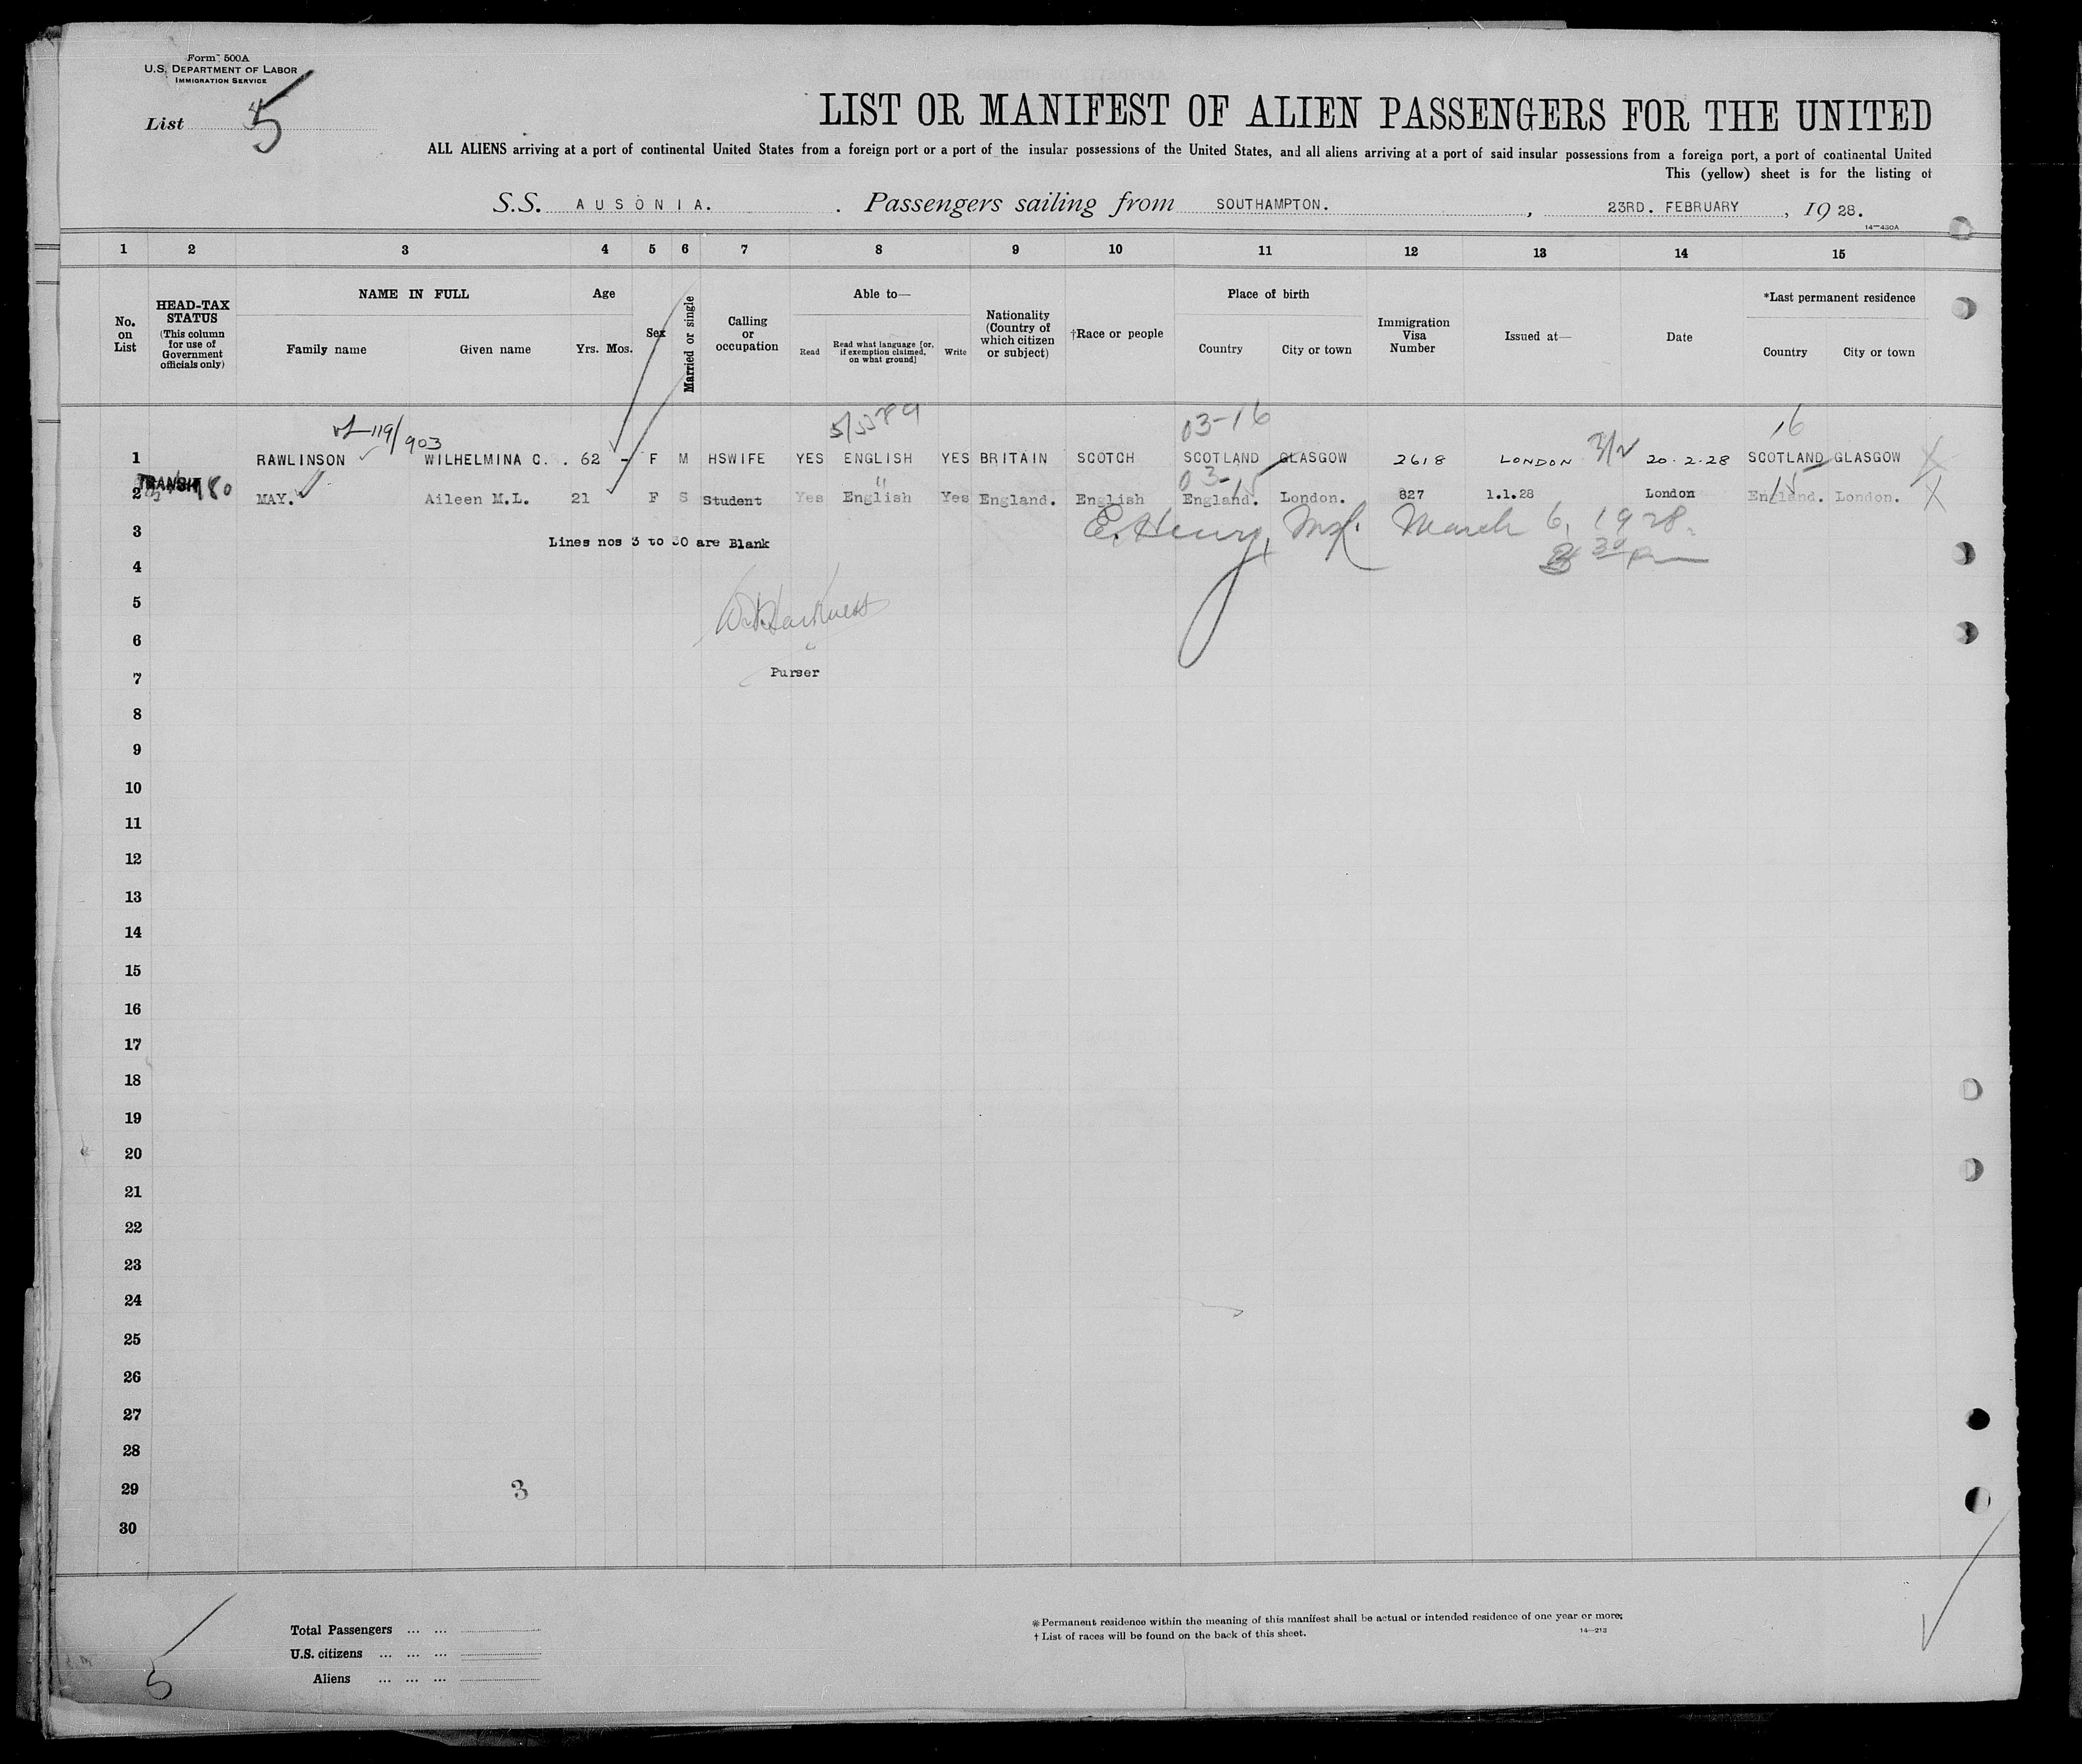 Form 500A
U.S. DEPARTMENT OF LABOR
IMMIGRATION SERVICE
List 5
LIST OR MANIFEST OF ALIEN PASSENGERS FOR THE UNITED
ALL ALIENS arriving at a port of continental United States from a foreign port or a port of the insular possessions of the United States, and all aliens arriving at a port of said insular possessions from a foreign port, a port of continental United
This (yellow) sheet is for the listing of
S.S. AUSONIA. Passengers sailing from SOUTHAMPTON. , 23RD. FEBRUARY , 1928.
14—430A
1 2 3 4 5 6 7 8 9 10 11 12 13 14 15
No. on List
HEAD-TAX STATUS (This column for use of Government officials only)
NAME IN FULL
Family name Given name
Age
Yrs. Mos.
Sex
Married or single
Calling or occupation
Able to—
Read Read what language [or, if exemption claimed, on what ground] Write
Nationality (Country of which citizen or subject)
†Race or people
Place of birth
Country City or town
Immigration Visa Number
Issued at—
Date
*Last permanent residence
Country City or town
119/903 03-16 16
1 RAWLINSON WILHELMINA C. 62 - F M HSWIFE YES ENGLISH YES BRITAIN SCOTCH SCOTLAND GLASGOW 2618 LONDON 20.2.28 SCOTLAND GLASGOW
TRANSIT 03-15 15
2 MAY. Aileen M.L. 21 F S Student Yes English Yes England. English England. London. 827 1.1.28 London England. London.
3 Lines nos 3 to 30 are Blank E. Henry, March 6, 1928.
30 pm
4
5
W. Harkness
6
7 Purser
8
9
10
11
12
13
14
15
16
17
18
19
20
21
22
23
24
25
26
27
28
29 3
30
Total Passengers ... ...
U.S. citizens ... ... ...
Aliens ... ... ...
5
* Permanent residence within the meaning of this manifest shall be actual or intended residence of one year or more.
† List of races will be found on the back of this sheet.
14—213